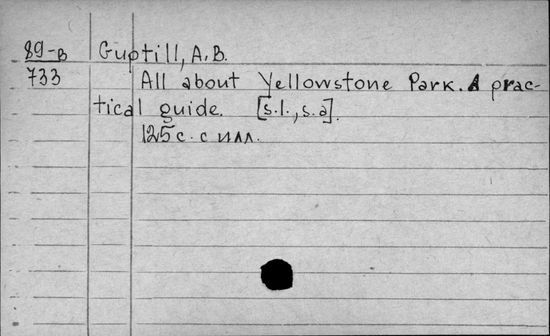 89-в Guptill, A.B.
733 All about Yellowstone Park. A prac-
tical guide. [s.l., s.a].
125 с. с илл.